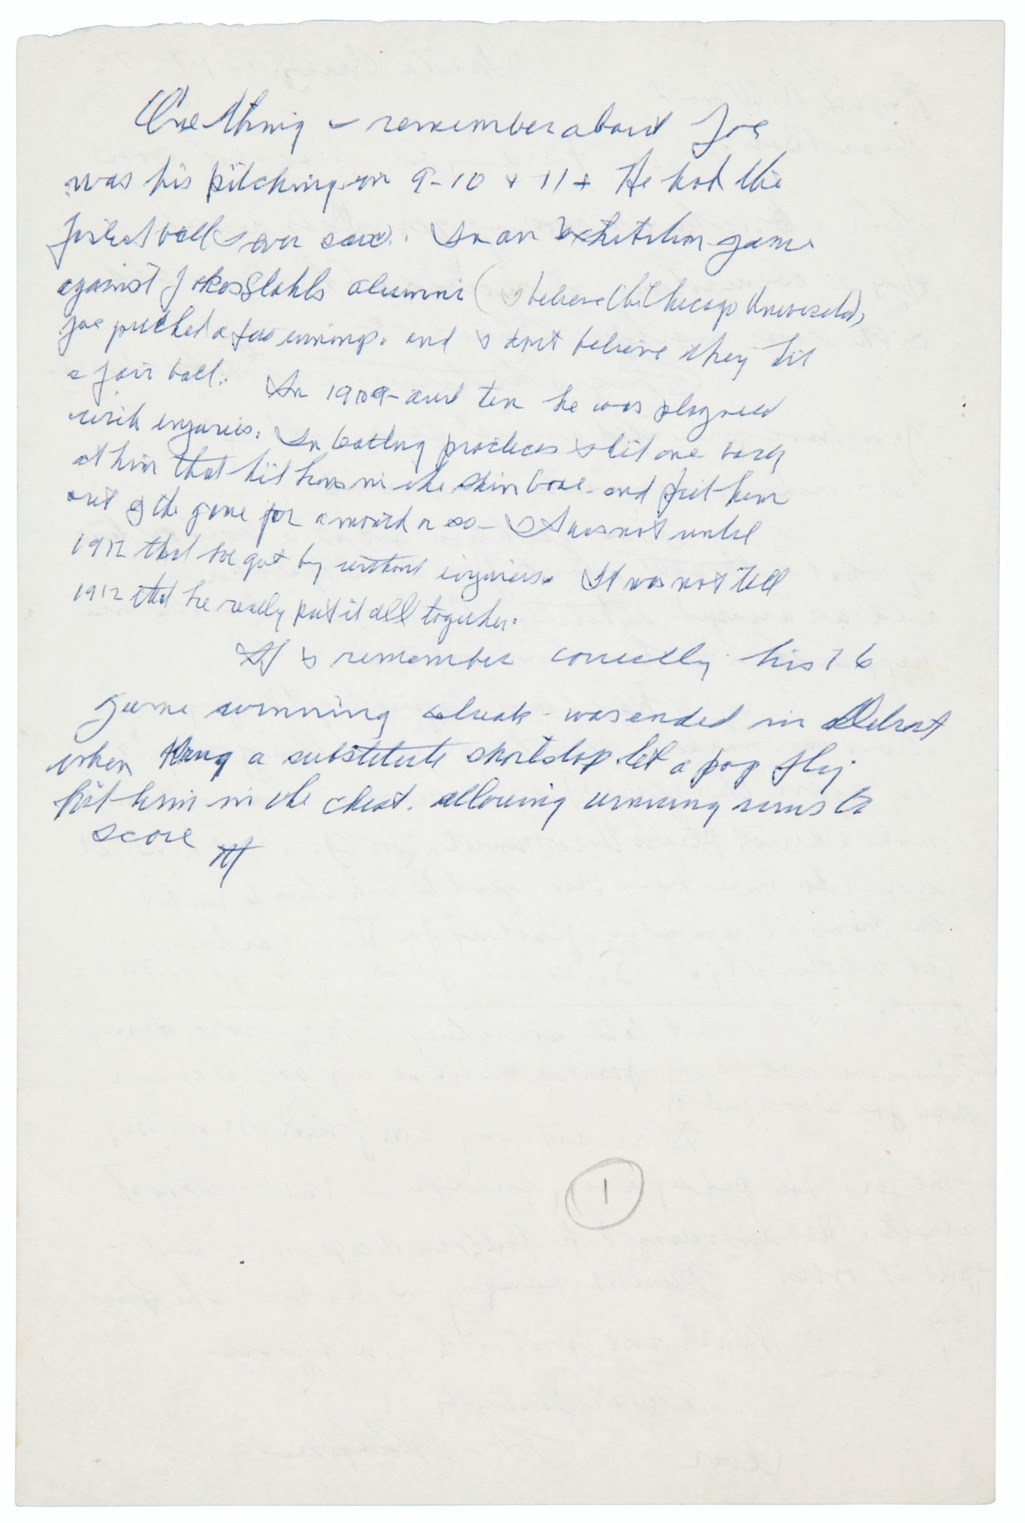 One thing I remember about Joe
was his pitching in 9-10 + 11 + He had the
fastest ball I ever saw. In an Exhibition game
against Jake Stahls alumni (I believe (the Chicago University),
Joe pitched a few innings. and I dont believe they hit
a fair ball. In 1909 - and ten he was plagued
with injuries. In batting practices I hit one back
at him that hit him in the shin bone - and put him
out of the game for a month or so - It was not until
1912 that he got by without injuries. It was not till
1912 that he really put it all together.
If I remember correctly his 16
game winning streak - was ended in Detroit
when a substitute shortstop let a pop fly
hit him in the chest. allowing winning runs to
score
1